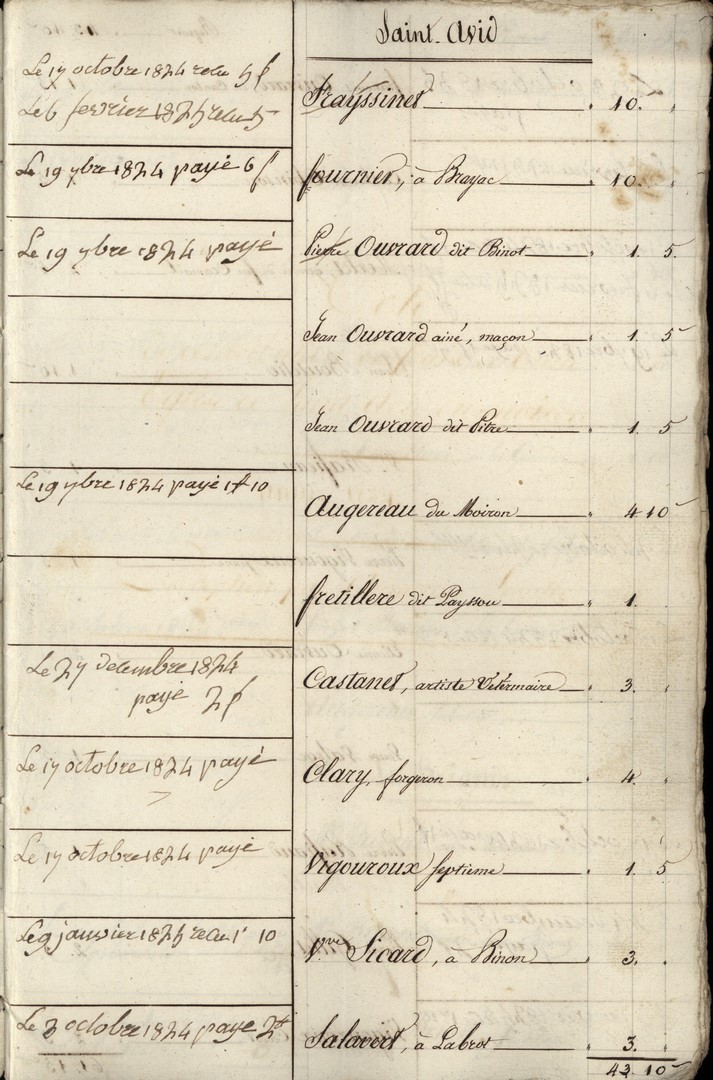 Saint-Avid
Le 17 octobre 1824 relu 5 f
Le 6 fevrier 1825 relu 5
Frayssinet 10.
Le 19 ybre 1824 payé 6 f
fournier, à Brayac 10.
Le 19 ybre 1824 payé
Pierre Ouvrard dit Binot 1. 5.
Jean Ouvrard ainé, maçon 1. 5
Jean Ouvrard dit Pitre 1. 5
Le 19 ybre 1824 payé 1 10
Augereau du Moiron 4 10
fretillere dit Payssou 1.
Le 27 decembre 1824
payé 2 f
Castanet, artiste Vétérinaire 3.
Le 17 octobre 1824 payé
Clary, forgeron 4.
Le 17 octobre 1824 payé
Vigouroux septième 1. 5
Le 9 janvier 1825 relu 1 10
Vve Sicard, à Binon 3.
Le 3 octobre 1824 payé 2
Salavert, à Labrot 3.
43. 10